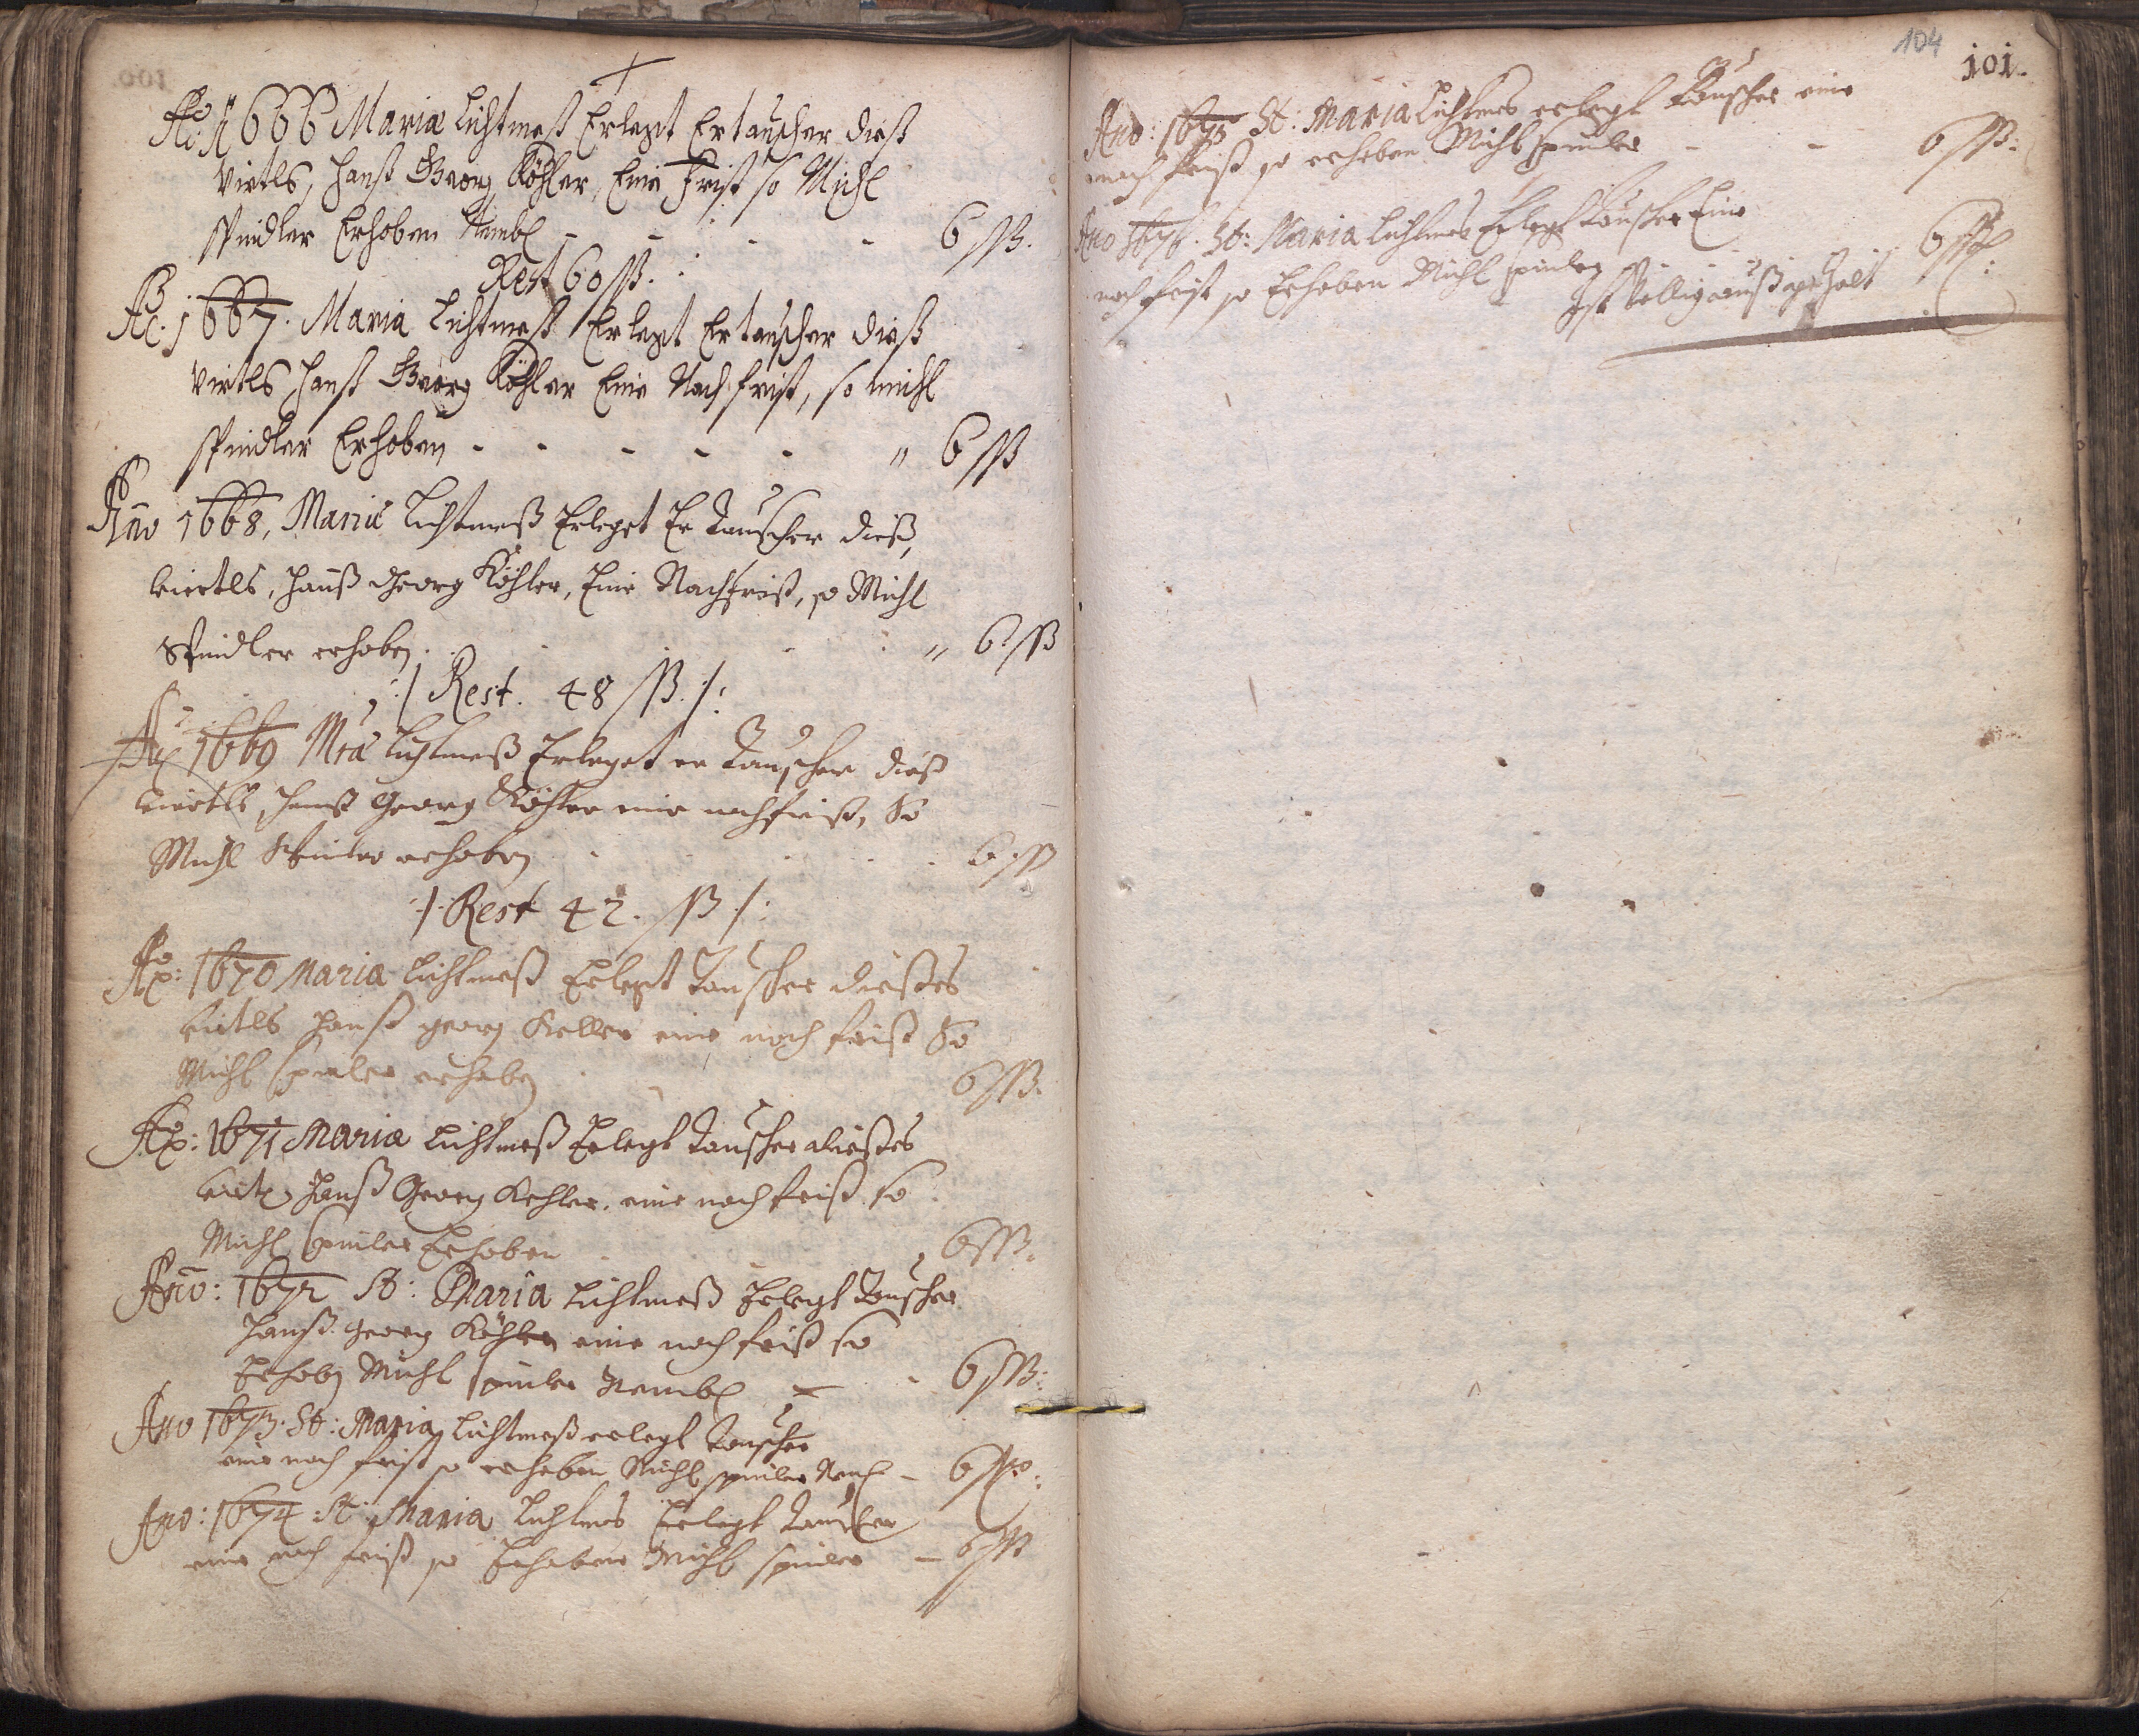 Ao: 1666 Mariæ Lichtmeß Erlegt Ertauscher dieß
Virtls, Hanß Georg Köhler, Eine Frist so Michl
Spindler Erhoben Nembl. - - - - 6 ßß.
Rest 60 ßß.
Ao: 1667. Maria Lichtmeß Erlegt Ertauscher dieß
Virtls Hanß Georg Köhler Eine Nachfrist, so Michl
Spindler Erhoben - - - - - " 6 ßß
Anno 1668, Mariæ Lichtmeß Erleget Er Tauscher dieß,
Viertls, Hanß Georg Köhler, Eine Nachfrist, so Michl
Spindler erhoben. " 6 ßß
:/ Rest. 48 ßß. /:
Ao 1669 Mræ Lichtmeß Erleget er Tauscher dieß
Viertls, Hanß Georg Köhler eine nachfrist, So
Michl Spindler erhoben 6 ßß
:/. Rest 42. ßß ./:
Ao: 1670 Maria Lichtmeß Erlegt Tauscher dießes
Virtls Hanß georg Keller eine nach frist So
Michl Spinler erhoben 6 ßß.
Ao: 1671 Maria Lichtmeß Erlegt Tauscher dießes
Virtl Hanß Georg Kehler. eine nach frist so
Michl Spinler Erhoben 6 ßß.
Anno: 1672 St: Maria Lichtmeß Erlegt Tauscher
Hanß georg Köhler eine nach frist so
Erhobn Michl Spinler Nembl - 6 ßß:
Ano 1673. St: Maria Lichtmeß erlegt Tauscher
eine nach frist so erhoben Michl Spinler - 6 ßß:
Ano: 1674 St Maria Lichtmes Erlegt Tauscher
eine nach frist so Erhoben Michl Spinler - 6 ßß
104
101.
Ano: 1675 St: Maria Lichtmes erlegt Tauscher eine
nach frist so erhoben Michl Spinler - - 6 ßß:
Ano 1676. St: Maria Lichtmes Erlegt Tauscher Eine
nach frist so Erhoben Michl Spinler 6 ßß:
Ist Völlig außgezalt